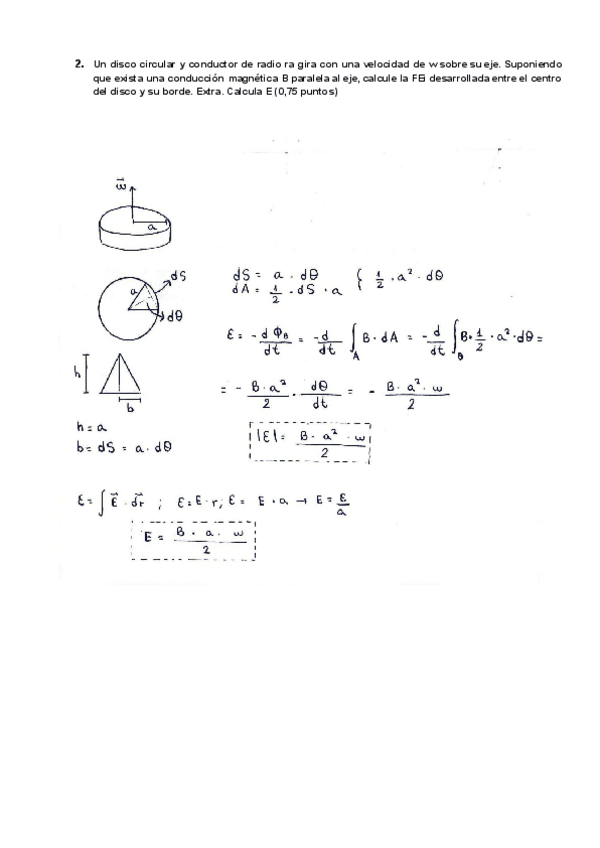 2. Un disco circular y conductor de radio ra gira con una velocidad de w sobre su eje. Suponiendo
que exista una conducción magnética B paralela al eje, calcule la FEi desarrollada entre el centro
del disco y su borde. Extra. Calcula E (0,75 puntos)
ω⃗
a
dS
a
dθ
dS = a · dθ
dA = 1/2 · dS · a { 1/2 · a² · dθ
ε = - dΦB/dt = -d/dt ∫A B · dA = -d/dt ∫θ B · 1/2 · a² · dθ =
h
b
= - B · a²/2 · dθ/dt = - B · a² · w/2
h = a
b = dS = a · dθ
|ε| = B · a² · w/2
ε = ∫ E⃗ · dr⃗ ; ε = E · r ; ε = E · a → E = ε/a
E = B · a · w/2